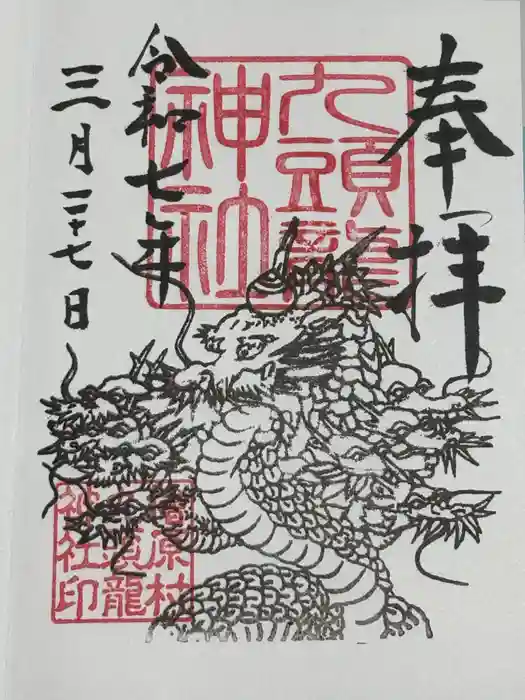 奉拝
九頭龍
神社
令和七年
三月二十七日
原村
頭龍
神社印